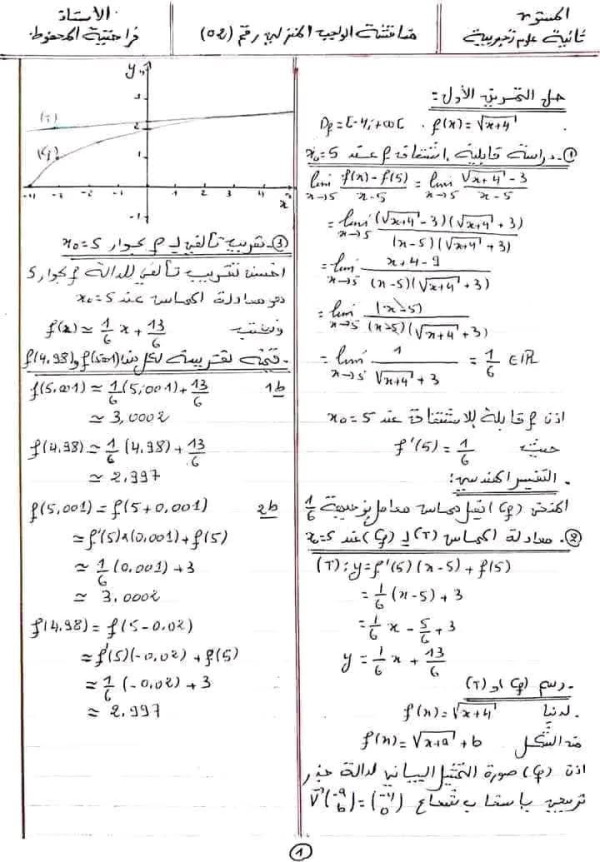 المستوى
ثانية علوم تجريبية
مناقشة الواجب المنزلي رقم (02)
الأستاذ
فراحتية المحفوظ
حل التمرين الأول:
Df=[-4;+∞[ . f(x)=√(x+4)
① - دراسة قابلية اشتقاق f عند x₀=5
lim x→5 (f(x)-f(5))/(x-5) = lim x→5 (√(x+4)-3)/(x-5)
= lim x→5 ((√(x+4)-3)(√(x+4)+3))/((x-5)(√(x+4)+3))
= lim x→5 (x+4-9)/((x-5)(√(x+4)+3))
= lim x→5 (x-5)/((x-5)(√(x+4)+3))
= lim x→5 1/(√(x+4)+3) = 1/6 ∈ℝ
اذن f قابلة للاشتقاق عند x₀=5
حيث f'(5)=1/6
. التفسير الهندسي:
المنحنى (Cf) يقبل مماس معامل توجيهه 1/6
②. معادلة المماس (T) لـ (Cf) عند x₀=5
(T): y=f'(5)(x-5)+f(5)
=1/6(x-5)+3
=1/6 x - 5/6 + 3
y=1/6 x + 13/6
. رسم (Cf) و (T)
. لدينا f(x)=√(x+4)
من الشكل f(x)=√(x+a)+b
اذن (Cf) صورة التمثيل البياني لدالة جذر
تربيعي بانسحاب شعاع V(-a b)=(-4 0)
y
3
2
1
-1
(T)
(Cf)
-4 -3 -2 -1 0 1 2 3 4 x
③ - تقريب تآلفي لـ f بجوار x₀=5
احسن تقريب تآلفي للدالة f بجوار 5
هو معادلة المماس عند x₀=5
ونكتب f(x)≃1/6 x+13/6
. قيمة تقريبية لكل من f(5,001) و f(4,98)
f(5,001)≃1/6(5,001)+13/6 1ط
≃3,0002
f(4,98)≃1/6(4,98)+13/6
≃2,997
f(5,001)=f(5+0,001) 2ط
≃f'(5)×(0,001)+f(5)
≃1/6(0,001)+3
≃3,0002
f(4,98)=f(5-0,02)
≃f'(5)(-0,02)+f(5)
≃1/6(-0,02)+3
≃2,997
1